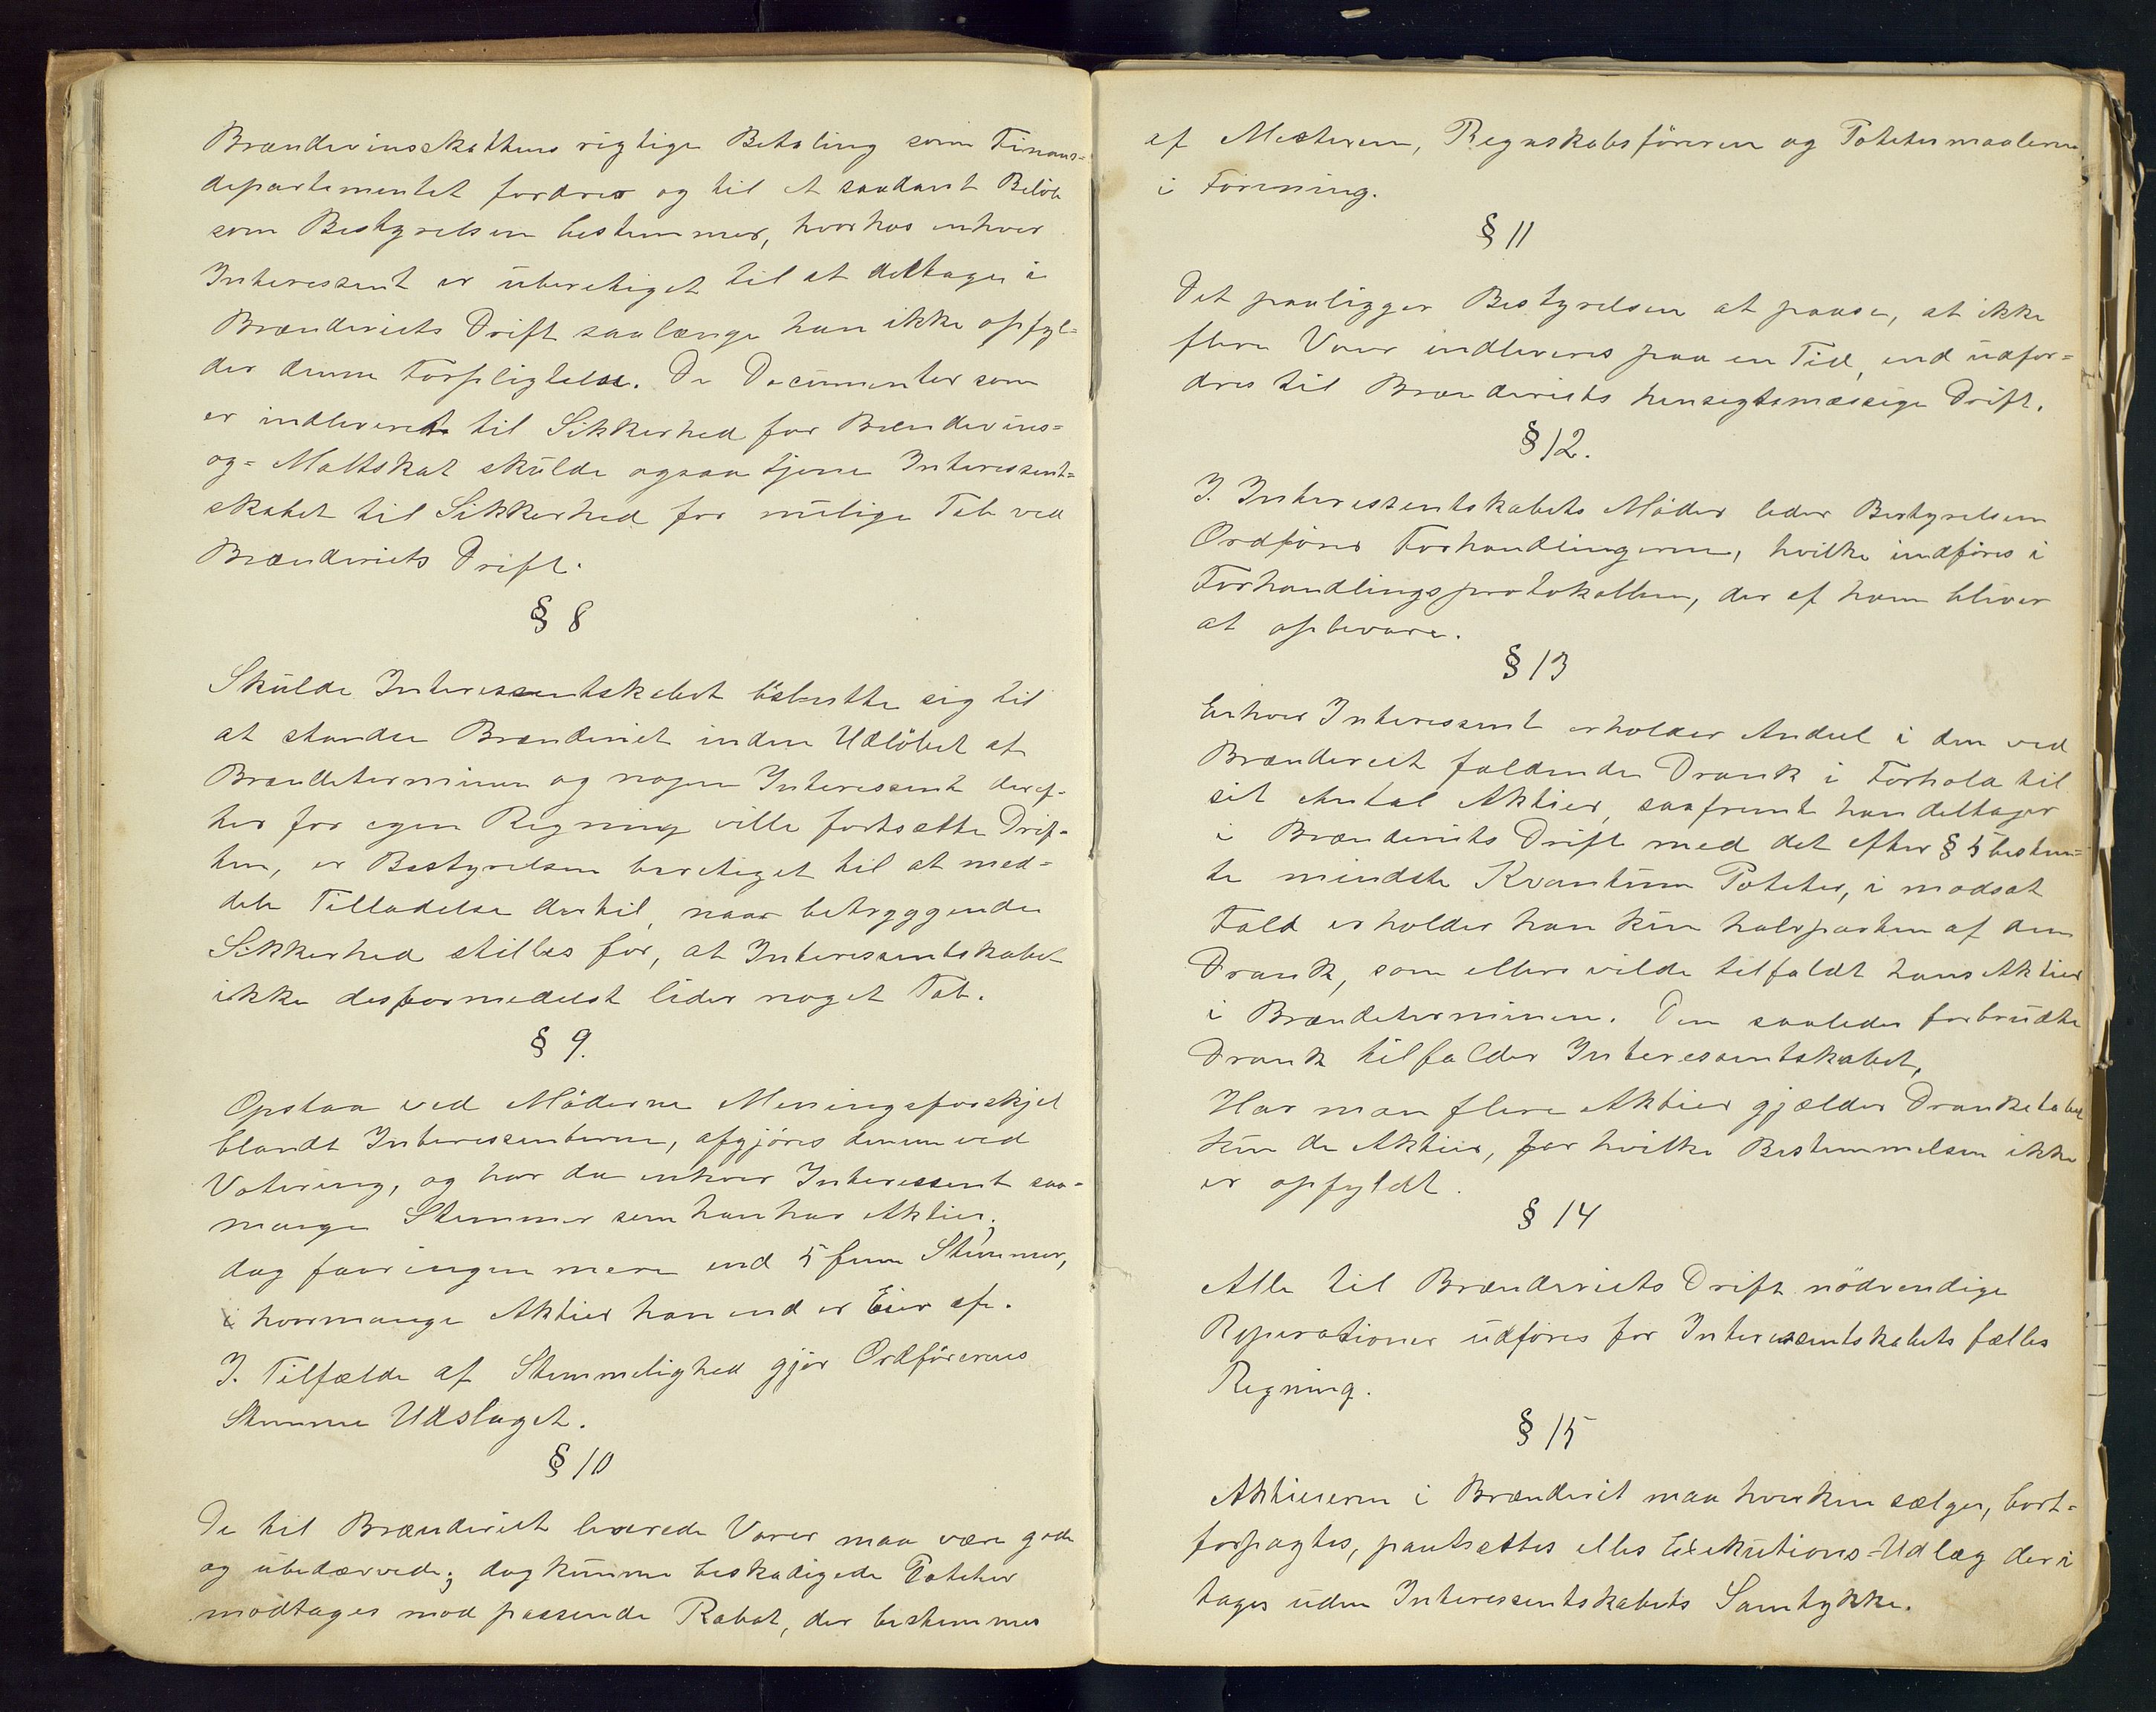 Brændevinsskattens rigtige Betaling som Finans-
departementet fordrer og til et saadant Beløb
som Bestyrelsen bestemmer, hvorhos enhver
Interessent er uberetiget til at deltage i
Brænderiets Drift saalænge han ikke opfyl-
der denne Forpligtelse. De Documenter som
er indleveret til Sikkerhed for Brændevins=
og= Maltskat skulde ogsaa tjene Interessent=
skabet til Sikkerhed for mulige Tab ved
Brænderiets Drift.
§ 8
Skulde Interessentskabet beslutte sig til
at standse Brænderiet inden Udløbet af
Brændeterminen og nogen Interessent deref-
ter for egen Regning ville fortsætte Drif-
ten, er Bestyrelsen beretiget til at med=
dele Tilladelse dertil, naar betryggende
Sikkerhed stilles for, at Interessentskabet
ikke desformedelst lider noget Tab.
§ 9.
Opstaa ved Møderne Meningsforskjel
blandt Interessenterne, afgjøres denne ved
Votering, og har da enhver Interessent saa-
mange Stemmer som han har Aktier;
dog faar ingen mere end 5 fem Stemmer,
i hvormange Aktier han end er Eier af.
I. Tilfælde af Stemmelighed gjør Ordførerens
Stemme Udslaget.
§ 10
De til Brænderiet leverede Varer maa være gode
og ubedærvede; dog kunne beskadigede Poteter
modtages mod passende Rabat, der bestemmes
af Mesteren, Regnskabsføreren og Potetesmaaleren
i Forening.
§ 11
Det paaligger Bestyrelsen at paase, at ikke
flere Varer indleveres paa en Tid, end udfor=
dres til Brænderiets hensigtsmæssige Drift.
§ 12.
I. Interessentskabets Møder leder Bestyrelsens
Ordfører Forhandlingerne, hvilke indføres i
Forhandlingsprotokollen, der af ham bliver
at opbevare.
§ 13
Enhver Interessent erholder Andeel i den ved
Brænderiet faldende Drank i Forhold til
sit Antal Aktier, saafremt han deltager
i Brænderiets Drift med det efter § 5 bestem=
te mindste Kvantum Poteter, i modsat
Fald erholder han kun halvparten af den
Drank, som ellers vilde tilfaldt hans Aktier
i Brændeterminen. Den saaledes forbrudte
Drank tilfalder Interessentskabet,
Har man flere Aktier gjælder Dranketabet
kun de Aktier, for hvilke Bestemmelsen ikke
er opfyldt.
§ 14
Alle til Brænderiets Drift nødvendige
Reperationer udføres for Interessentskabets fælles
Regning.
§ 15
Aktieserne i Brænderiet maa hverken sælges, bort=
forpagtes, pantsættes elles Exekutions=Udlæg deri
tages uden Interessentskabets Samtykke.